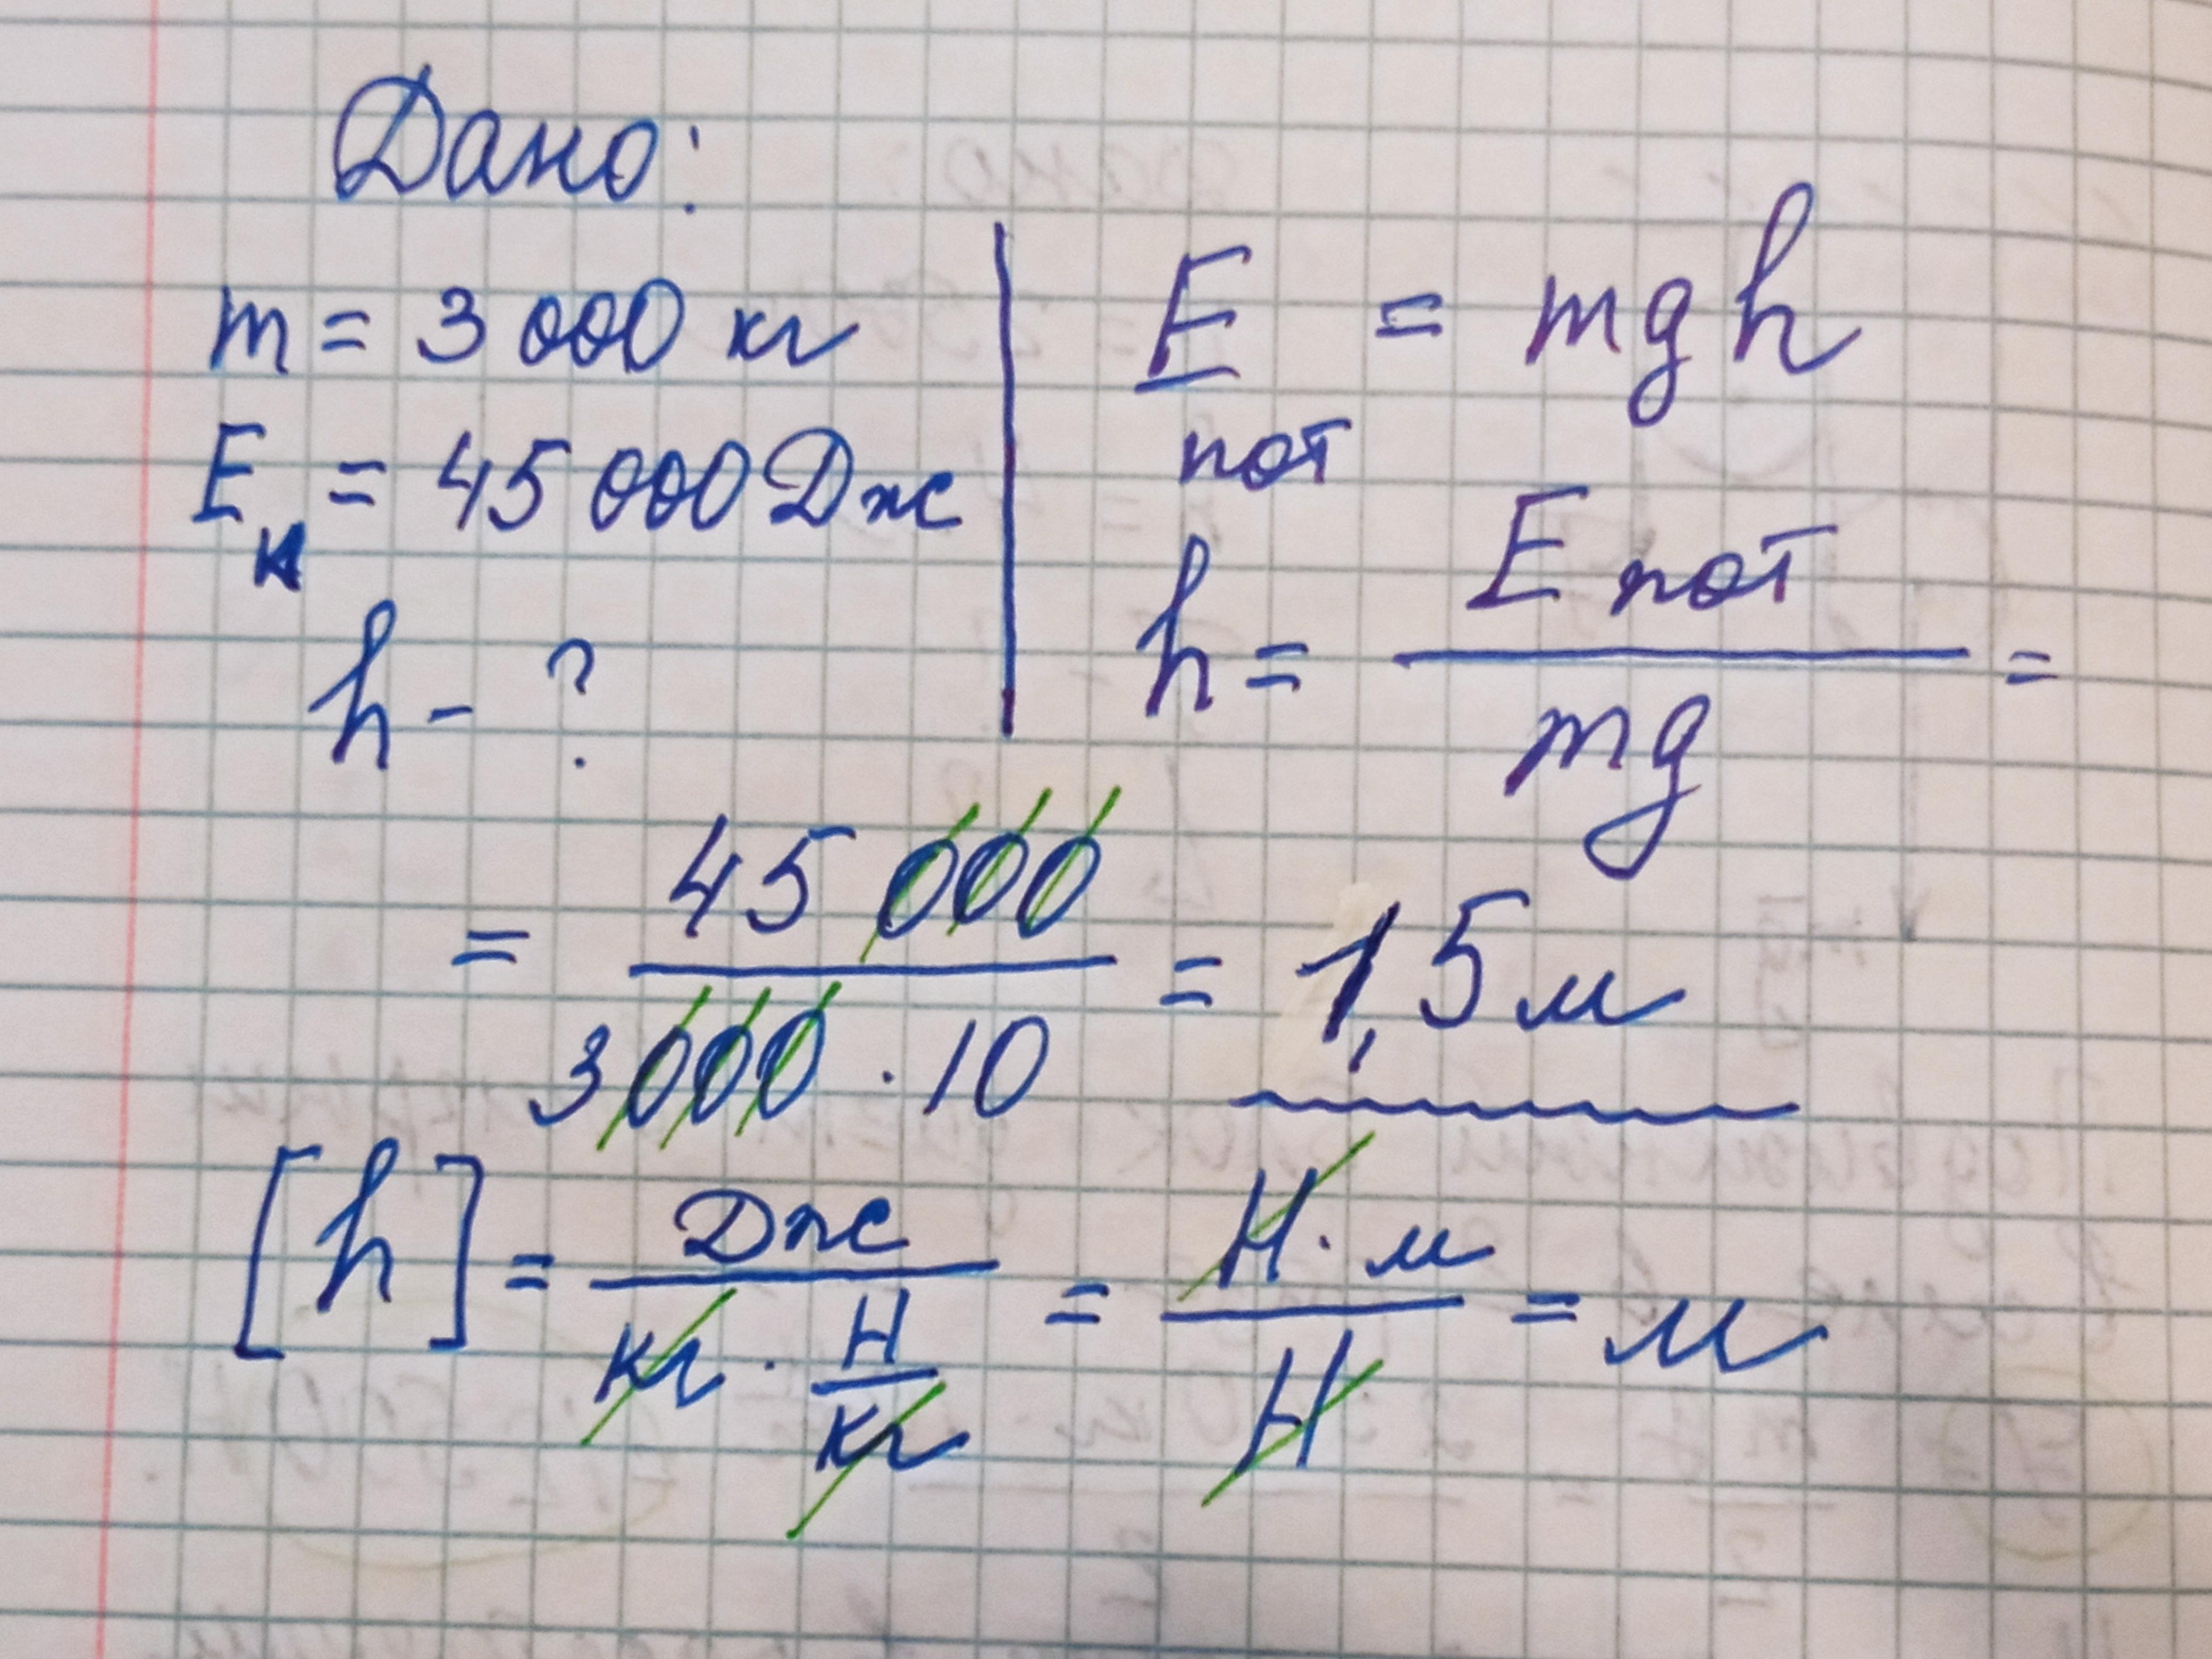 Дано:
m = 3 000 кг
Eк = 45 000 Дж
h - ?
E пот = mgh
h = E пот / mg =
= 45 000 / 3000 · 10 = 1,5 м
[h] = Дж / кг · Н/кг = Н · м / Н = м